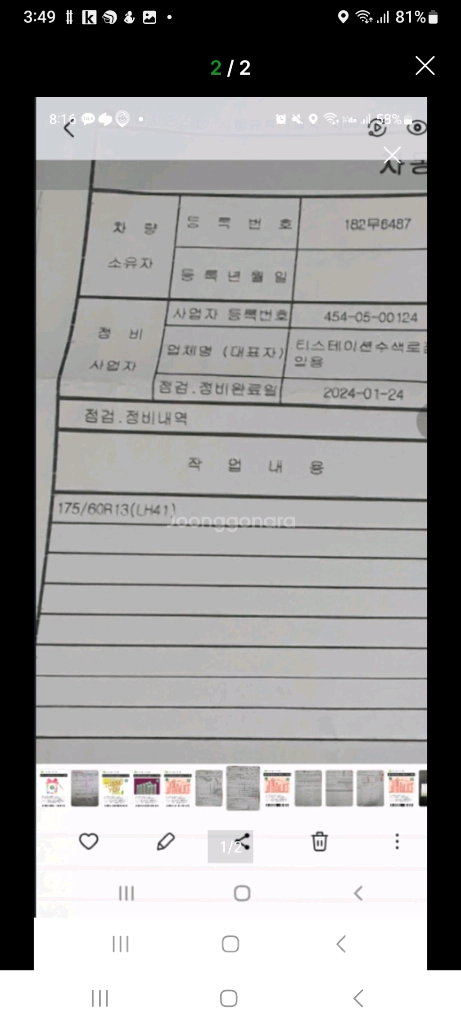 3:49
81%
2 / 2
8:16
58%
차량
소유자
등 록 번 호
182무6487
등록년월일
정 비
사업자
사업자 등록번호
454-05-00124
업체명 (대표자)
티스테이션수색로
일용
점검.정비완료일
2024-01-24
점검.정비내역
작 업 내 용
175/60R13(LH41)
Joonggonara
1/2